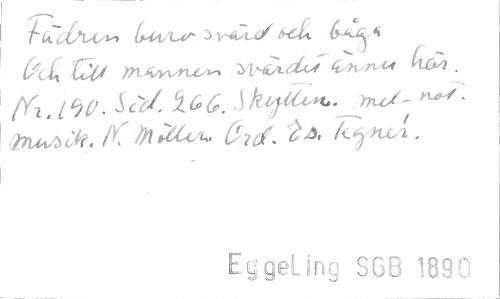 Fädren buro svärd och båga
Och till mannen svärdet ännu hör.
Nr. 190. Sid. 266. Skytten. med not.
musik. N. Möller. Ord. Es. Tegnér.
EggeLing SGB 1890